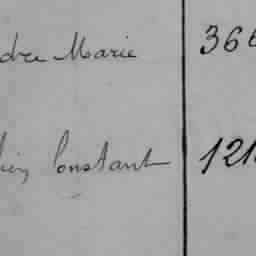 dre Marie 366
Constant 121